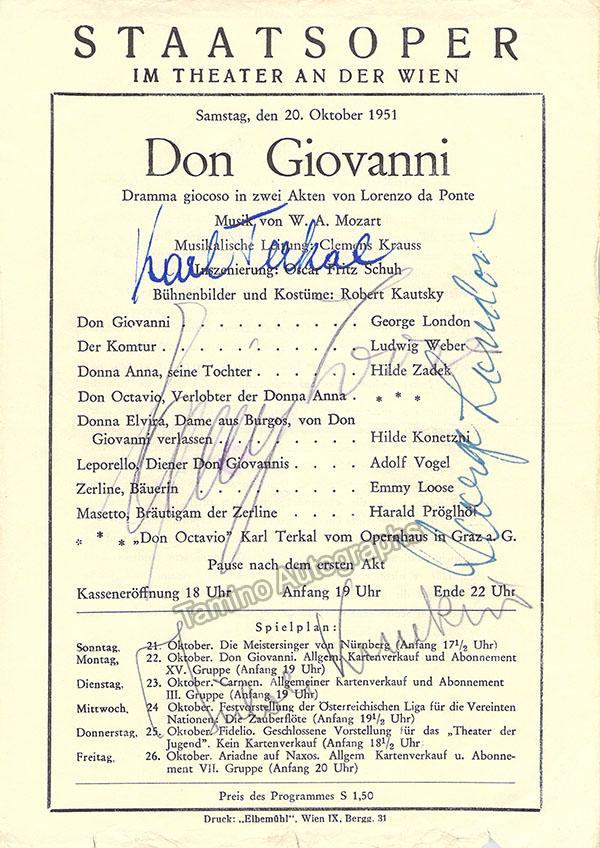 STAATSOPER
IM THEATER AN DER WIEN
Samstag, den 20. Oktober 1951
Don Giovanni
Dramma giocoso in zwei Akten von Lorenzo da Ponte
Musik von W. A. Mozart
Karl Terkal
Musikalische Leitung: Clemens Krauss
Inszenierung: Oscar Fritz Schuh
Bühnenbilder und Kostüme: Robert Kautsky
Don Giovanni . . . . . . . . . . George London
Der Komtur . . . . . . . . . . . Ludwig Weber
Donna Anna, seine Tochter . . . . . Hilde Zadek
Don Octavio, Verlobter der Donna Anna . * * *
Donna Elvira, Dame aus Burgos, von Don
Giovanni verlassen . . . . . . . Hilde Konetzni
Leporello, Diener Don Giovannis . . . . Adolf Vogel
Zerline, Bäuerin . . . . . . . . . Emmy Loose
Masetto, Bräutigam der Zerline . . . . Harald Pröglhöf
* * * „Don Octavio" Karl Terkal vom Opernhaus in Graz a. G.
George London
Pause nach dem ersten Akt
Kasseneröffnung 18 Uhr Anfang 19 Uhr Ende 22 Uhr
Tamino Autographs
Spielplan:
Sonntag, 21. Oktober. Die Meistersinger von Nürnberg (Anfang 17 1/2 Uhr)
Montag, 22. Oktober. Don Giovanni. Allgem. Kartenverkauf und Abonnement
XV. Gruppe (Anfang 19 Uhr)
Dienstag, 23. Oktober. Carmen. Allgemeiner Kartenverkauf und Abonnement
III. Gruppe (Anfang 19 Uhr)
Mittwoch, 24 Oktober. Festvorstellung der Österreichischen Liga für die Vereinten
Nationen. Die Zauberflöte (Anfang 19 1/2 Uhr)
Donnerstag, 25. Oktober. Fidelio. Geschlossene Vorstellung für das „Theater der
Jugend". Kein Kartenverkauf (Anfang 18 1/2 Uhr)
Freitag, 26. Oktober. Ariadne auf Naxos. Allgem Kartenverkauf u. Abonne-
ment VII. Gruppe (Anfang 20 Uhr)
Preis des Programmes S 1,50
Druck: „Elbemühl", Wien IX, Bergg. 31